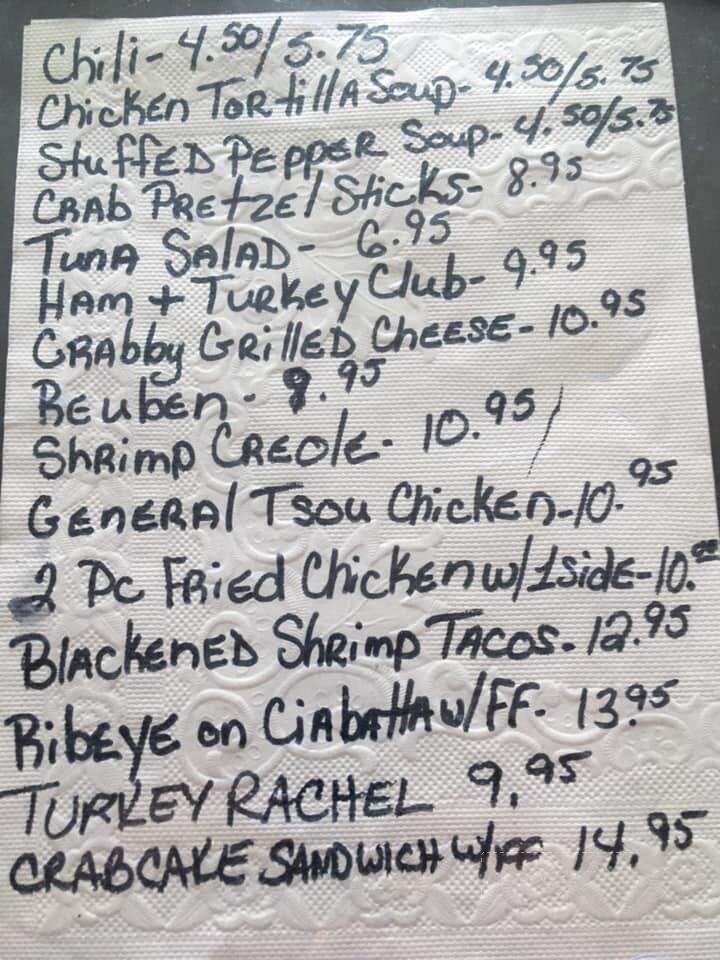 Chili- 4.50/5.75
Chicken Tortilla Soup- 4.50/5.75
Stuffed Pepper Soup- 4.50/5.75
Crab Pretzel Sticks- 8.95
Tuna Salad- 6.95
Ham + Turkey Club- 9.95
Crabby Grilled Cheese- 10.95
Reuben- 9.95
Shrimp Creole- 10.95
General Tsou Chicken-10.95
2 Pc Fried Chicken w/1side-10.00
Blackened Shrimp Tacos- 12.95
Ribeye on Ciabatta w/FF- 13.95
TURKEY RACHEL 9.95
CRABCAKE SANDWICH w/FF 14.95